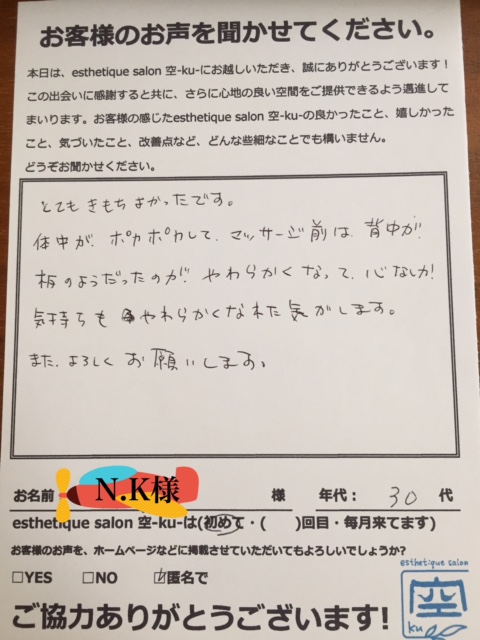 お客様のお声を聞かせてください。
本日は、esthetique salon 空-ku-にお越しいただき、誠にありがとうございます!
この出会いに感謝すると共に、さらに心地の良い空間をご提供できるよう邁進して
まいります。お客様の感じたesthetique salon 空-ku-の良かったこと、嬉しかった
こと、気づいたこと、改善点など、どんな些細なことでも構いません。
どうぞお聞かせください。
とてもきもちよかったです。
体中が、ポカポカして、マッサージ前は、背中が
板のようだったのが やわらかくなって、心なしか
気持ちも やわらかくなれた気がします。
また、よろしくお願いします。
お名前 N.K様 様 年代: 30 代
esthetique salon 空-ku-は(初めて・( )回目・毎月来てます)
お客様のお声を、ホームページなどに掲載させていただいてもよろしいでしょうか?
□YES □NO ☑匿名で
esthetique salon
空
ku
ご協力ありがとうございます!